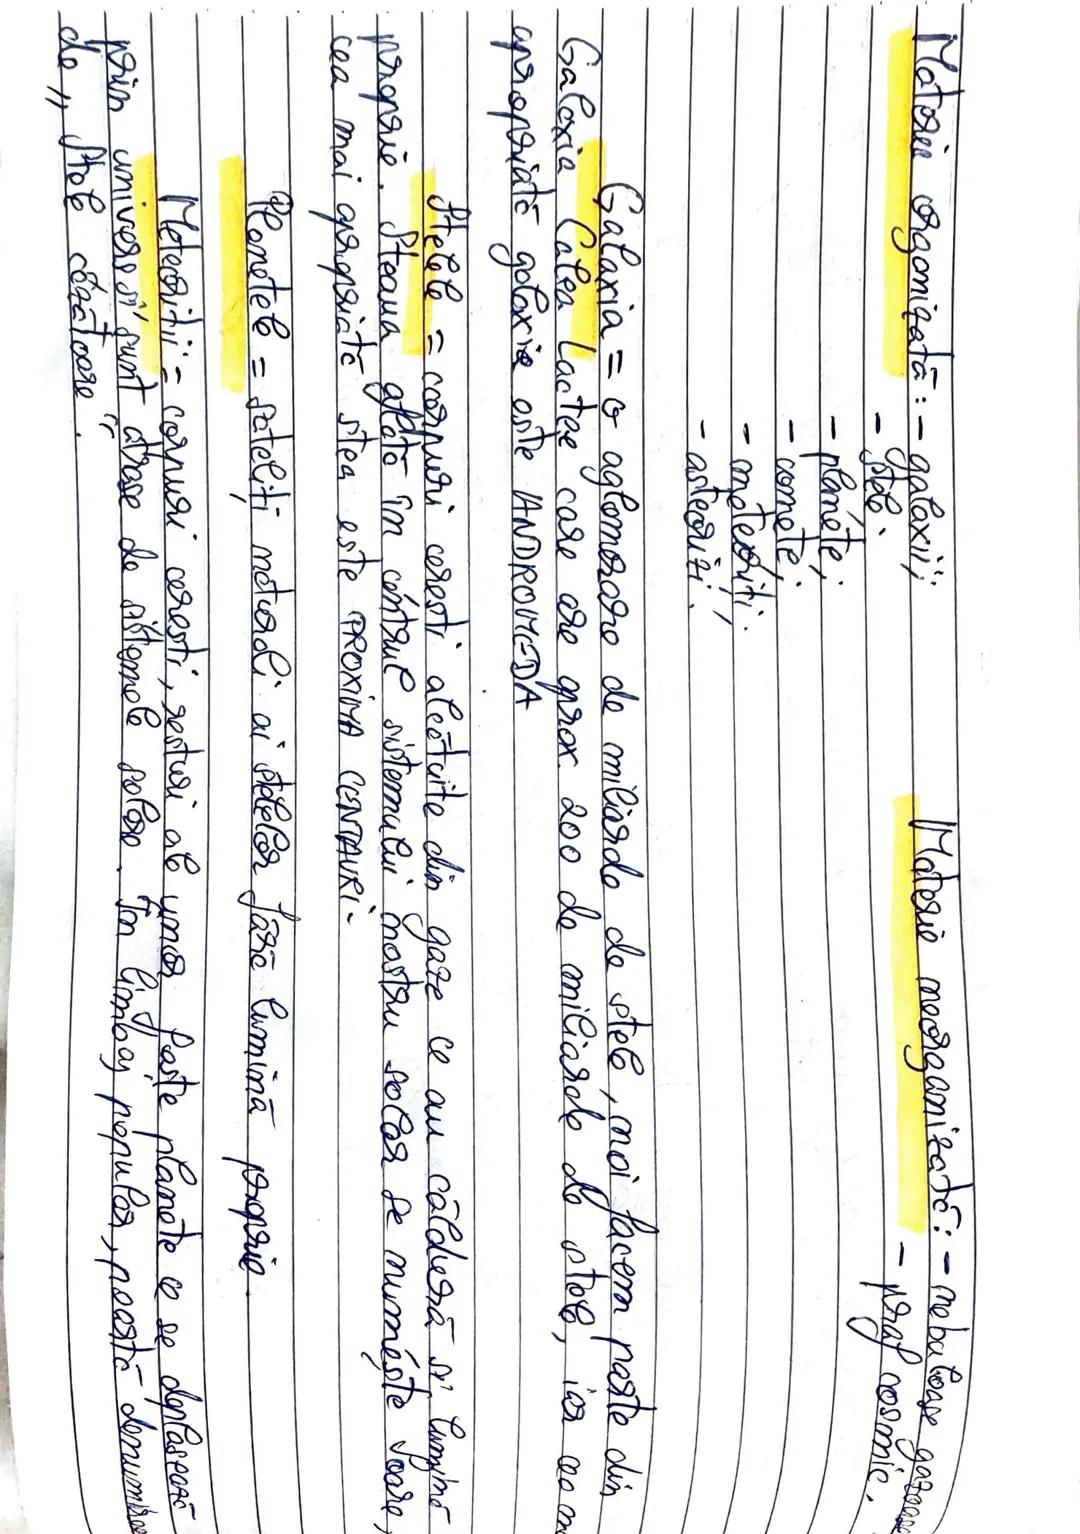 Materie organizată: - galaxii;
- stele;
- planete;
- comete;
- meteoriți;
- asteorizi.
Materie neorganizată: - nebuloase gazoase
- praf cosmic.
Galaxia = o aglomerare de miliarde de stele, noi facem parte din
Galaxia Calea Lactee care are aprox 200 de miliarde de stele, iar cea
apropiată galaxie este ANDROMEDA
Stelele = corpuri cerești alcătuite din gaze ce au căldură și lumină
proprie. Steaua aflată în centrul sistemului nostru solar se numește Soare,
cea mai apropiată stea este PROXIMA CENTAURI.
Planetele = sateliți naturali ai stelelor fără lumină proprie.
Meteoriții = corpuri cerești, resturi ale unor foste planete ce se deplasează
prin univers și sunt atrase de sistemele solare. În limbaj popular, poartă denumirea
de „Stele căzătoare".